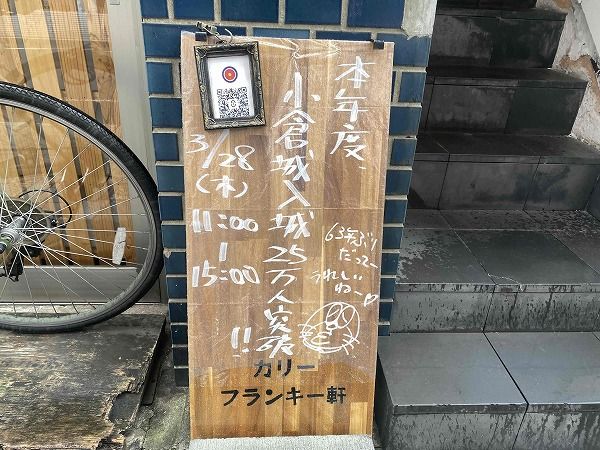 本年度、
小倉城入城25万人突破!!
63年ぶり
だってー
うれしい
ねー♡
3/28
(木)
11:00
〜
15:00
カリー
フランキー軒